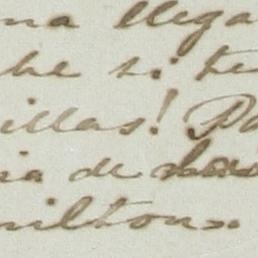 na llega
he si te
illas! Pa
ia de las
milton..